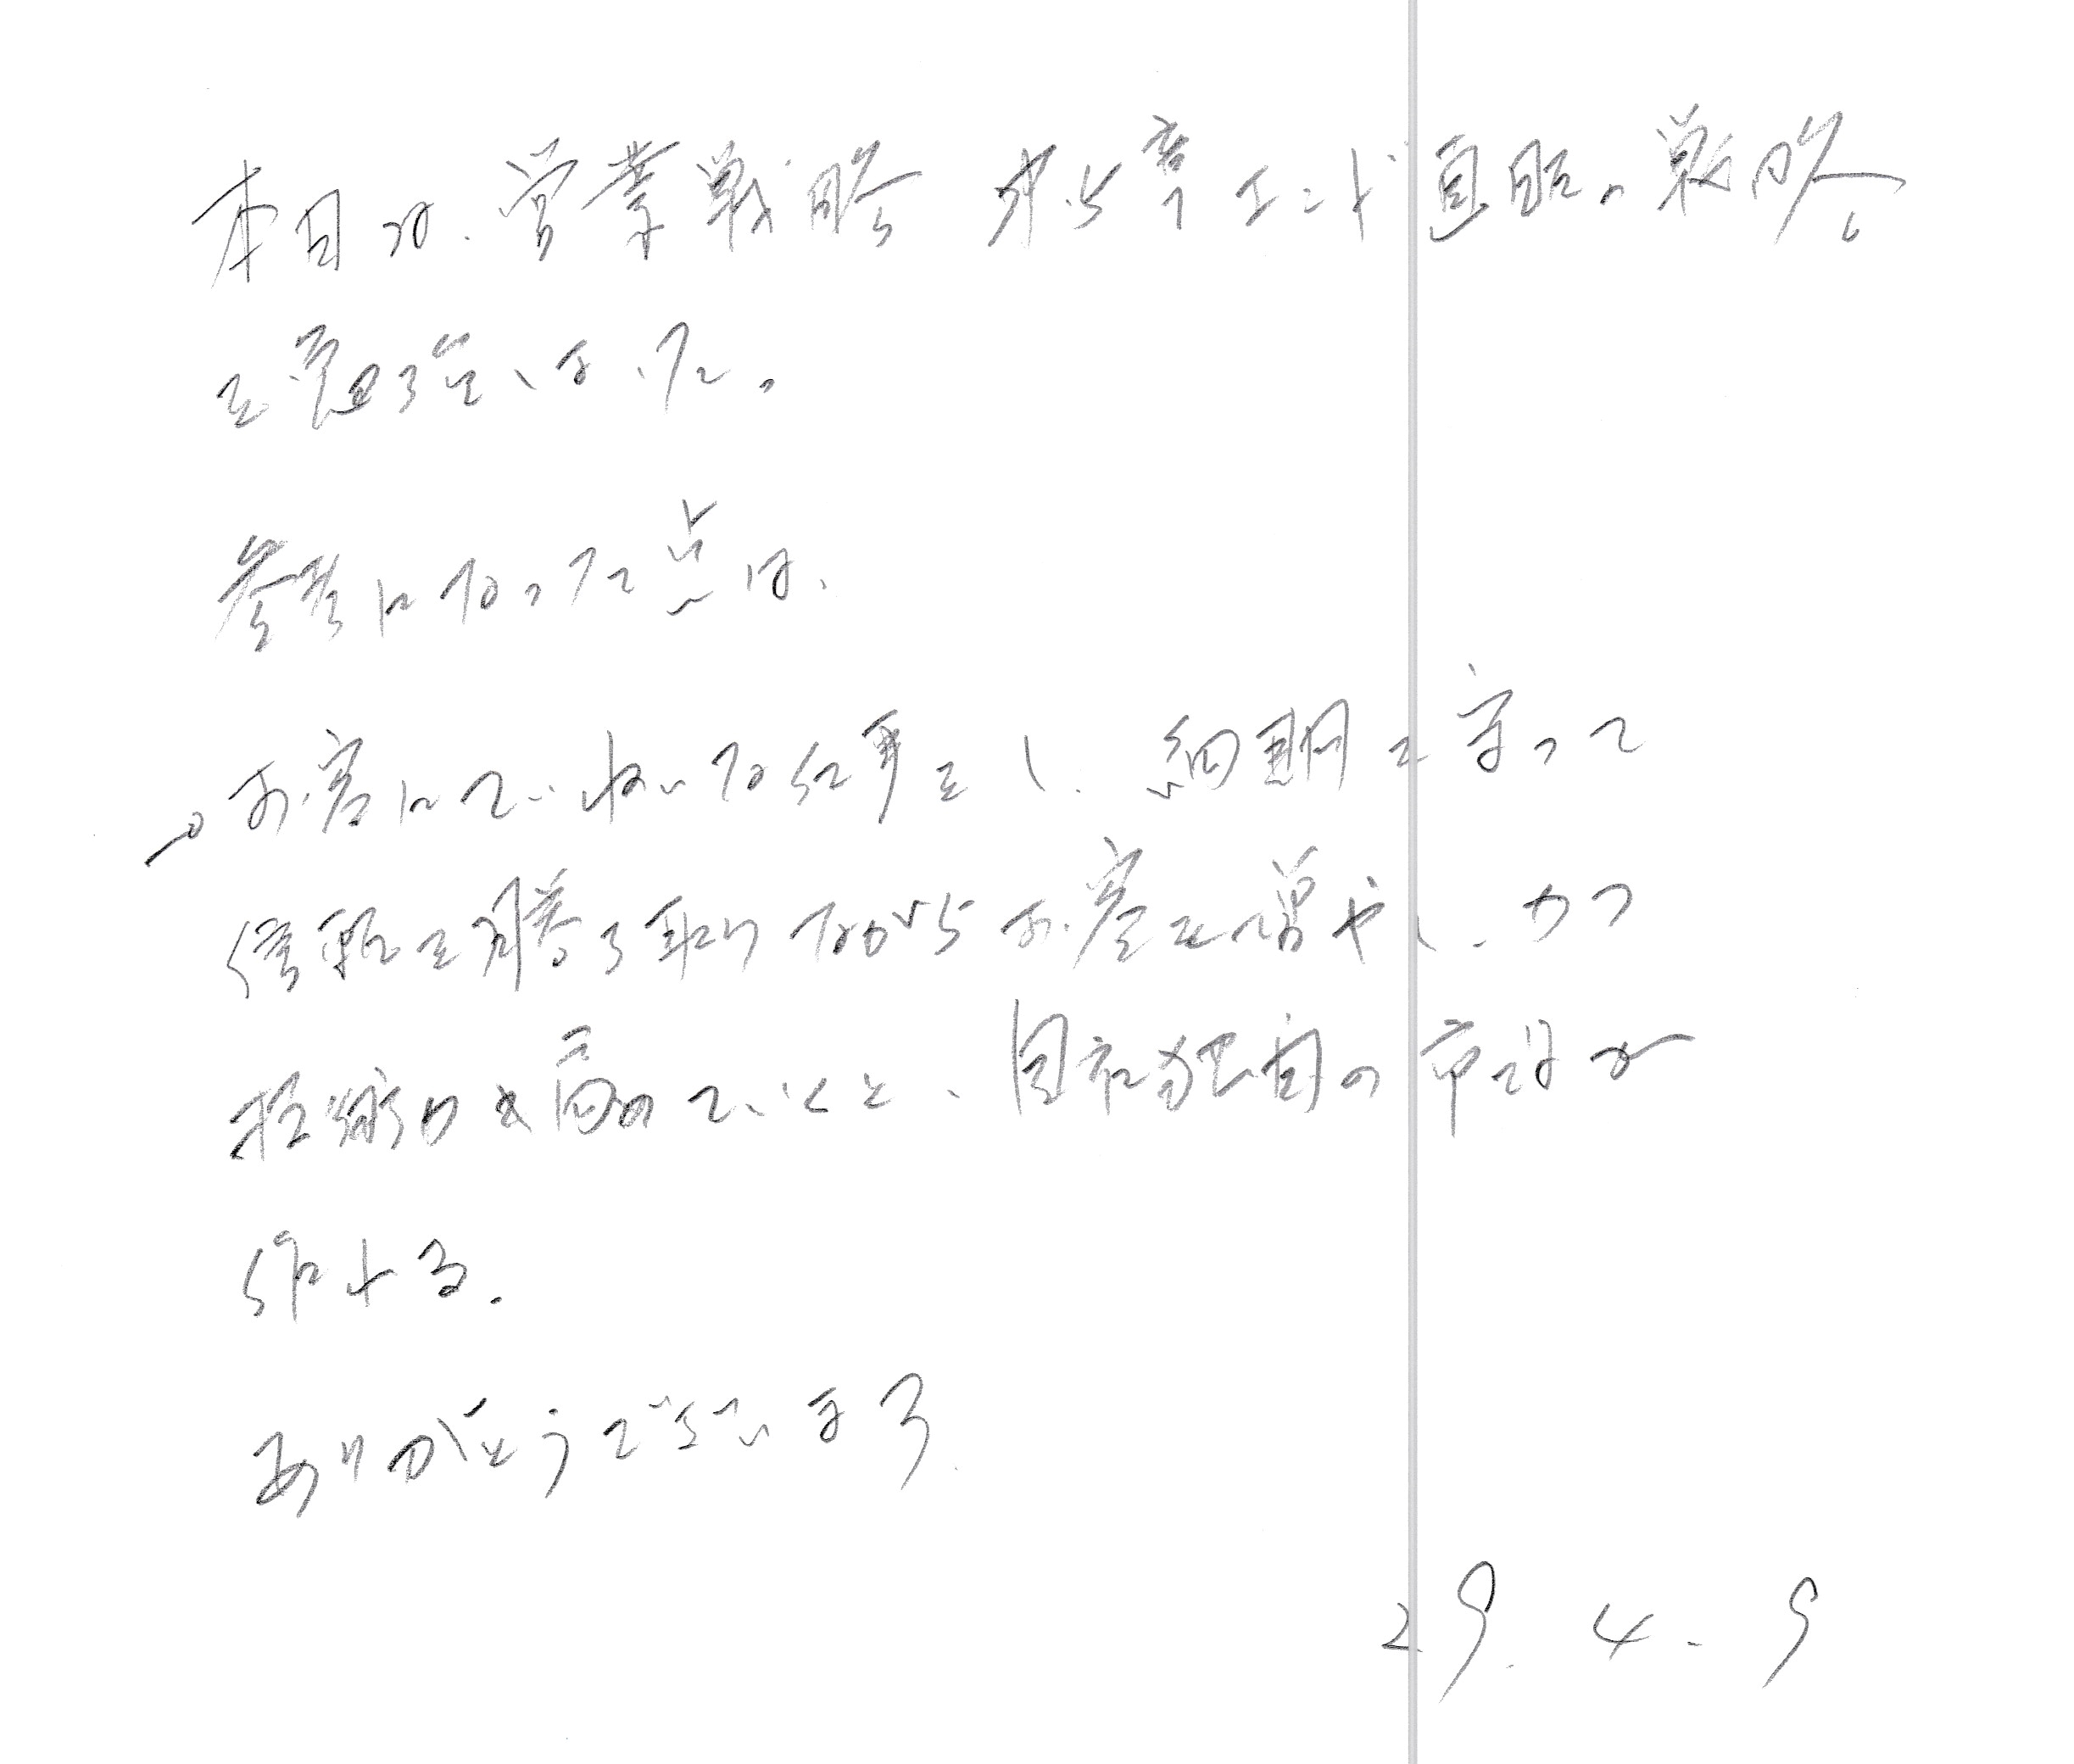 本日は、営業戦略 オお客エンド直販の戦略
を意識していました。
参考になった点は、
→お客にていねいな仕事をし、納期を守って
信頼を勝ち取りながらお客を増やし、かつ
技術力を高めていくと、自社独自の市場が
作れる。
ありがとうございます
29.4.9